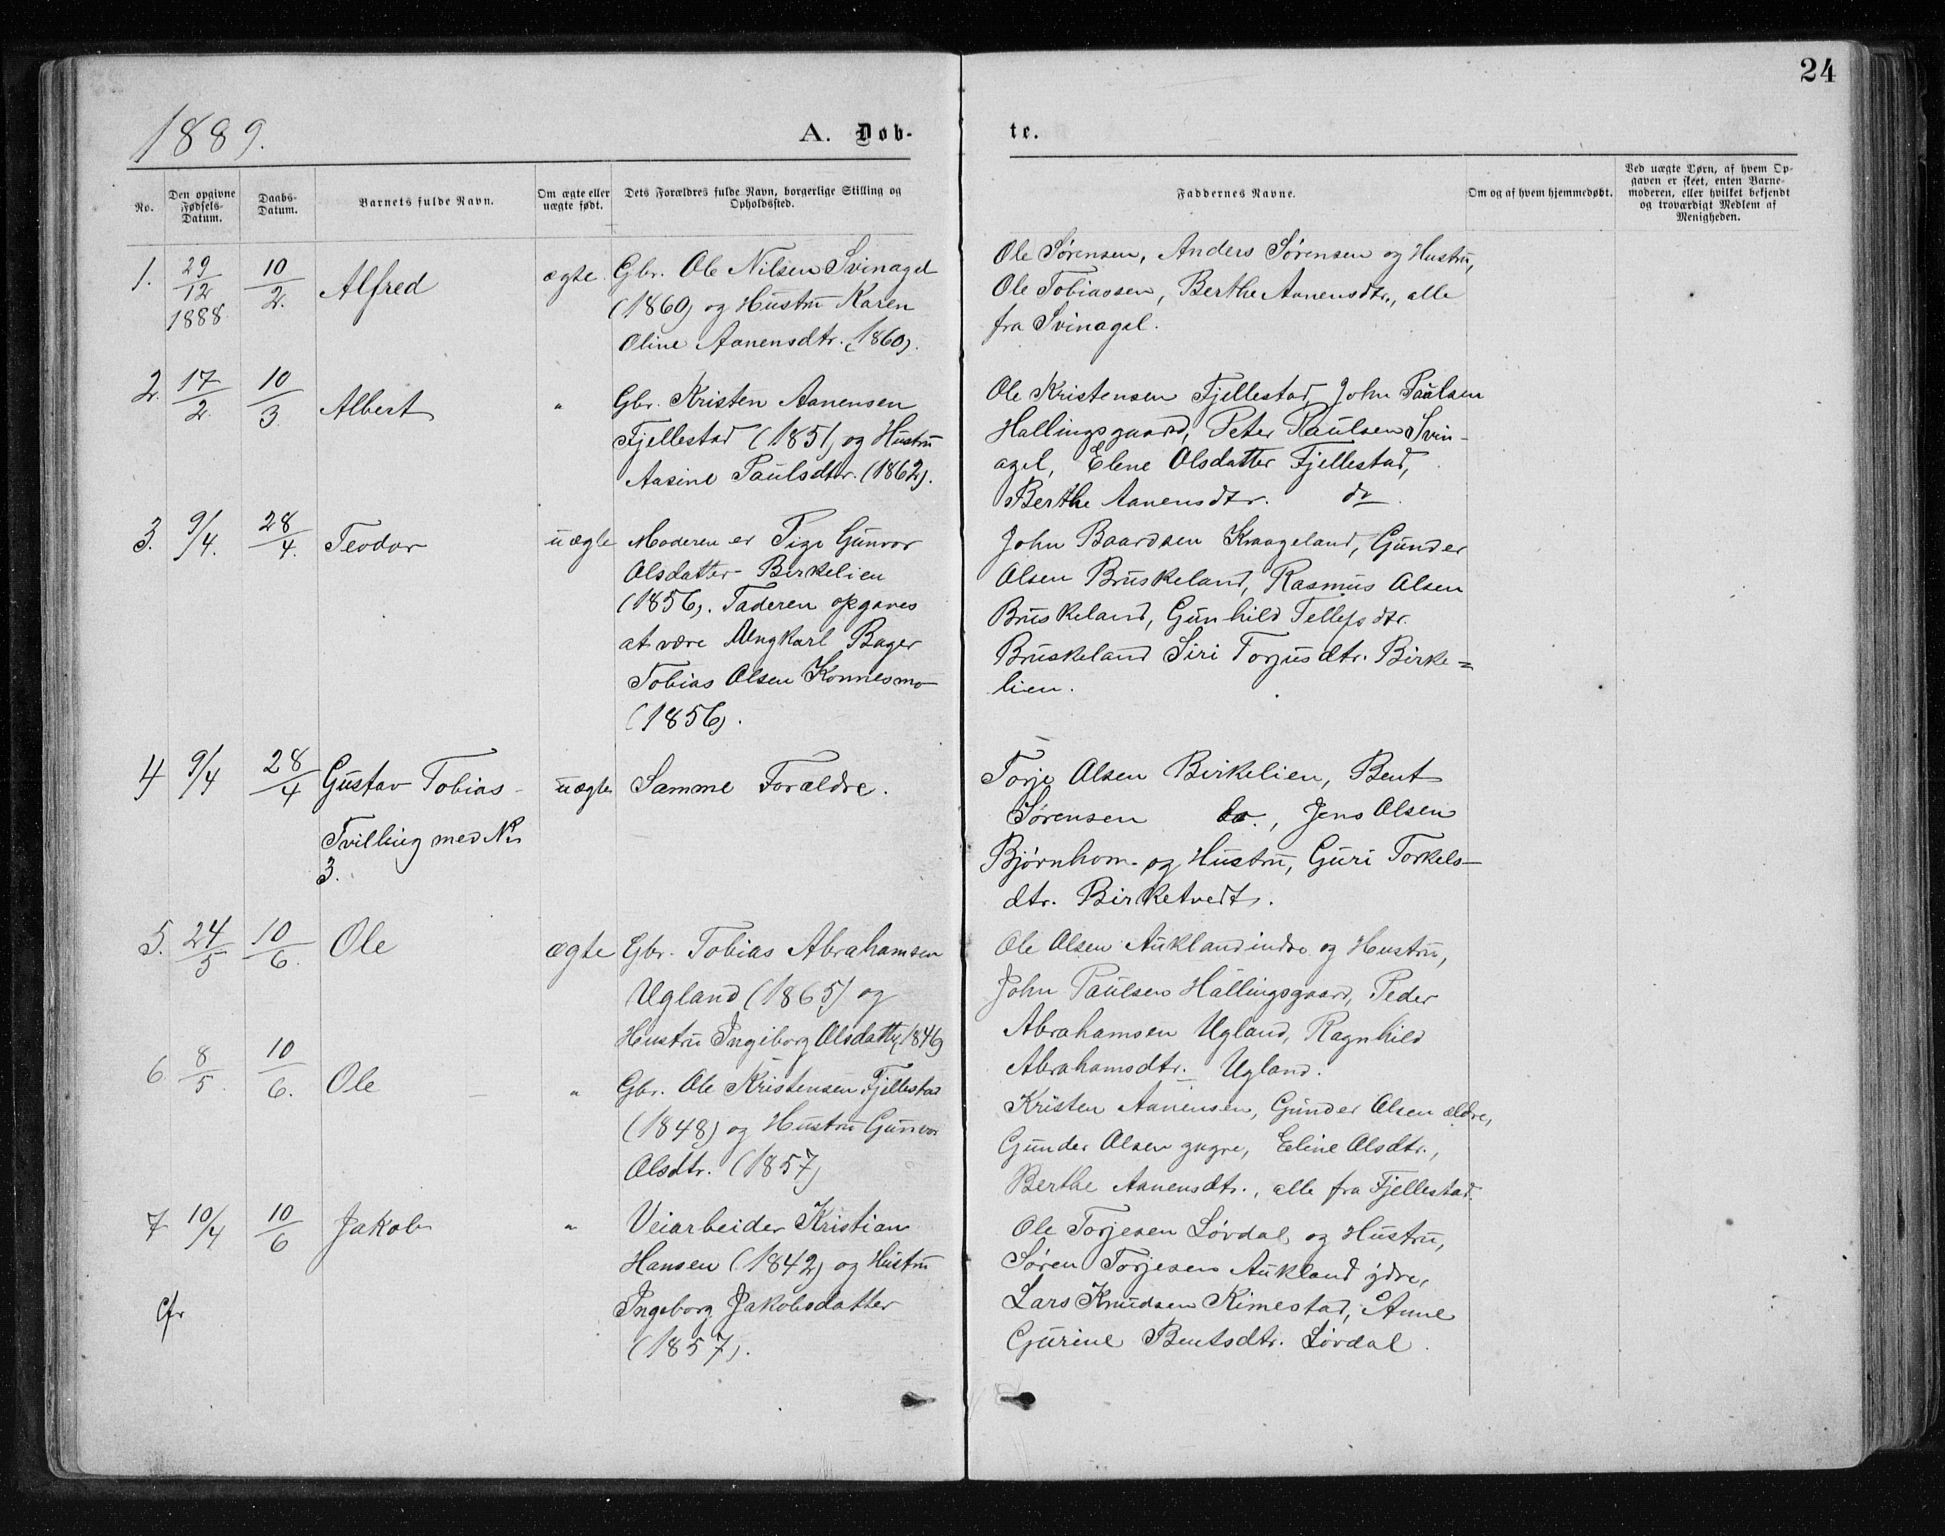 24
1889.
A. Døb-
te.
No.
Den opgivne Fødsels-Datum.
Daabs-Datum.
Barnets fulde Navn.
Om ægte eller uægte født.
Dets Forældres fulde Navn, borgerlige Stilling og Opholdssted.
Faddernes Navne.
Om og af hvem hjemmedøbt.
Ved uægte Børn, af hvem Op-
gaven er skeet, enten Barne-
moderen, eller hvilket bekjendt
og troværdigt Medlem af
Menigheden.
1. 29/12 1888 10/2. Alfred ægte. Gbr. Ole Nilsen Svinagel
(1860) og Hustru Karen
Oline Aanensdtr. (1860).
Ole Sørensen, Anders Sørensen og Hustru,
Ole Tobiassen, Berthe Aanensdtr., alle
fra Svinagel.
2. 17/2. 10/3. Albert " Gbr. Kristen Aanensen
Fjellestad (1851) og Hustru
Aasine Paulsdtr. (1862).
Ole Kristensen Fjellestad, John Paulsen
Hallingsgaard, Peter Paulsen Svin-
agel, Elene Olsdatter Fjellestad,
Berthe Aanensdtr. do.
3. 9/4. 28/4. Teodor uægte Moderen er Pige Gunvor
Olsdatter Birkelien
(1856). Faderen opgaves
at være Ungkarl Bager
Tobias Olsen Konnesmo
(1856).
John Baardsen Kraageland, Gunder
Olsen Bruskeland, Rasmus Olsen
Bruskeland, Gunhild Tellefsdtr.
Bruskeland Siri Torjusdtr. Birke=
lien.
4 9/4 28/4 Gustav Tobias - uægte Samme Forældre.
Tvilling med No
3.
Torje Olsen Birkelien, Bent
Sørensen do., Jens Olsen
Bjørnhom og Hustru, Guri Torkels-
dtr. Birketvedt.
5. 24/5 10/6. Ole ægte Gbr. Tobias Abrahamsen
Ugland (1865) og
Hustru Ingeborg Olsdatter (1846)
Ole Olsen Aukland indre og Hustru,
John Paulsen Hallingsgaard, Peder
Abrahamsen Ugland, Ragnhild
Abrahamsdtr. Ugland.
6 8/5. 10/6. Ole " Gbr. Ole Kristensen Fjellestad
(1848) og Hustru Gunvor
Olsdtr. (1857)
Kristen Aanensen, Gunder Olsen ældre,
Gunder Olsen yngre, Eline Olsdtr.,
Berthe Aanensdtr., alle fra Fjellestad.
7 10/4 10/6 Jakob " Veiarbeider Kristian
Hansen (1842) og Hustru
Ingeborg Jakobsdatter
(1857).
Cfr
Ole Torjesen Løvdal og Hustru,
Søren Torjesen Aukland ydre,
Lars Knudsen Kimestad, Anne
Gurine Bentsdtr. Løvdal.